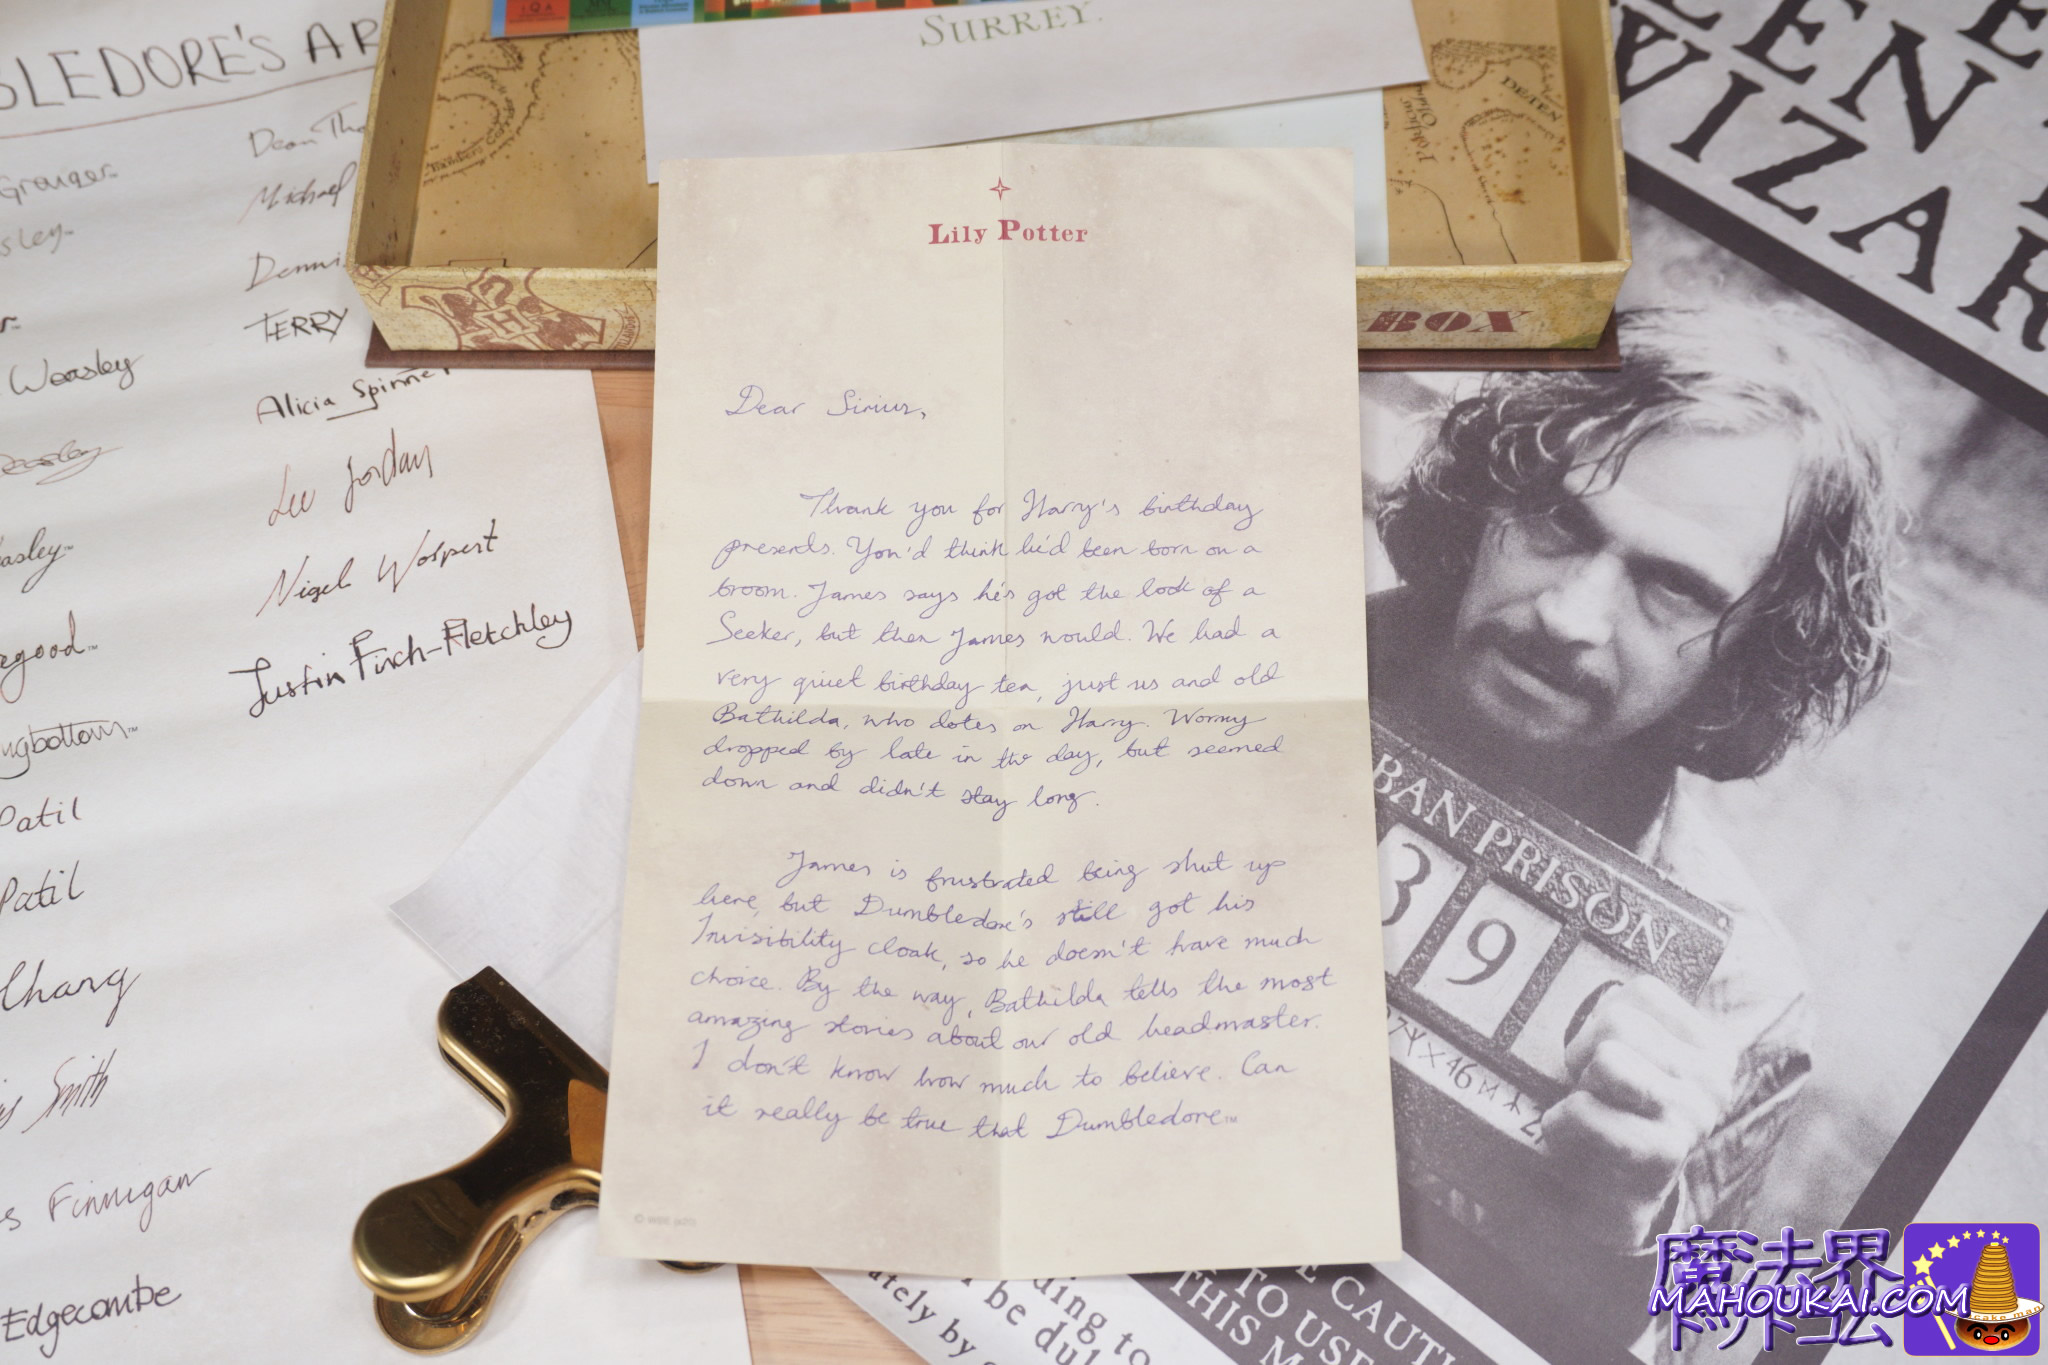 DUMBLEDORE'S AR
Granger™
Weasley
Patil
Patil
Chang
Smith
Finnigan
Edgecombe
Dean Tho
Michael
Denni
TERRY
Alicia Spinnet
Lee Jordan
Nigel Wolpert
Justin Finch-Fletchley
SURREY.
BOX
Lily Potter
Dear Sirius,
Thank you for Harry's birthday
presents. You'd think he'd been born on a
broom. James says he's got the look of a
Seeker, but then James would. We had a
very quiet birthday tea, just us and old
Bathilda, who dotes on Harry. Wormy
dropped by late in the day, but seemed
down and didn't stay long.
James is frustrated being shut up
here, but Dumbledore's still got his
Invisibility cloak, so he doesn't have much
choice. By the way, Bathilda tells the most
amazing stories about our old headmaster.
I don't know how much to believe. Can
it really be true that Dumbledore™
EEN
WIZAR
BAN PRISON
39
CAUTI
TO USE
THIS M
ding to
be dul
ately by
魔法界
MAHOUKAI.COM
ドットコム